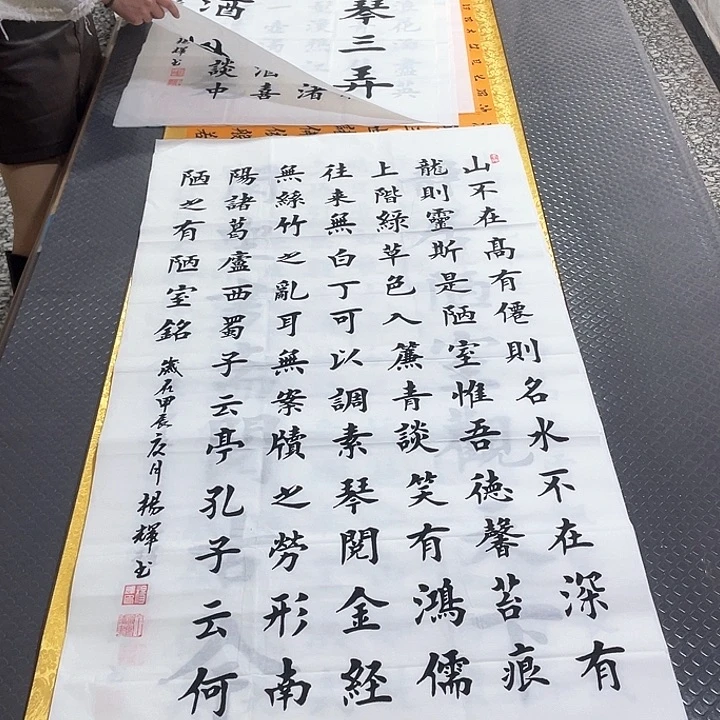 琴三弄
酒
渚
酒喜
談中
山不在髙有僊則名水不在深有
龍則靈斯是陋室惟吾德馨苔痕
上階綠草色入簾青談笑有鴻儒
往来無白丁可以調素琴閱金経
無絲竹之亂耳無案牘之勞形南
陽諸葛廬西蜀子云亭孔子云何
陋之有陋室銘
歲在甲辰月楊輝书